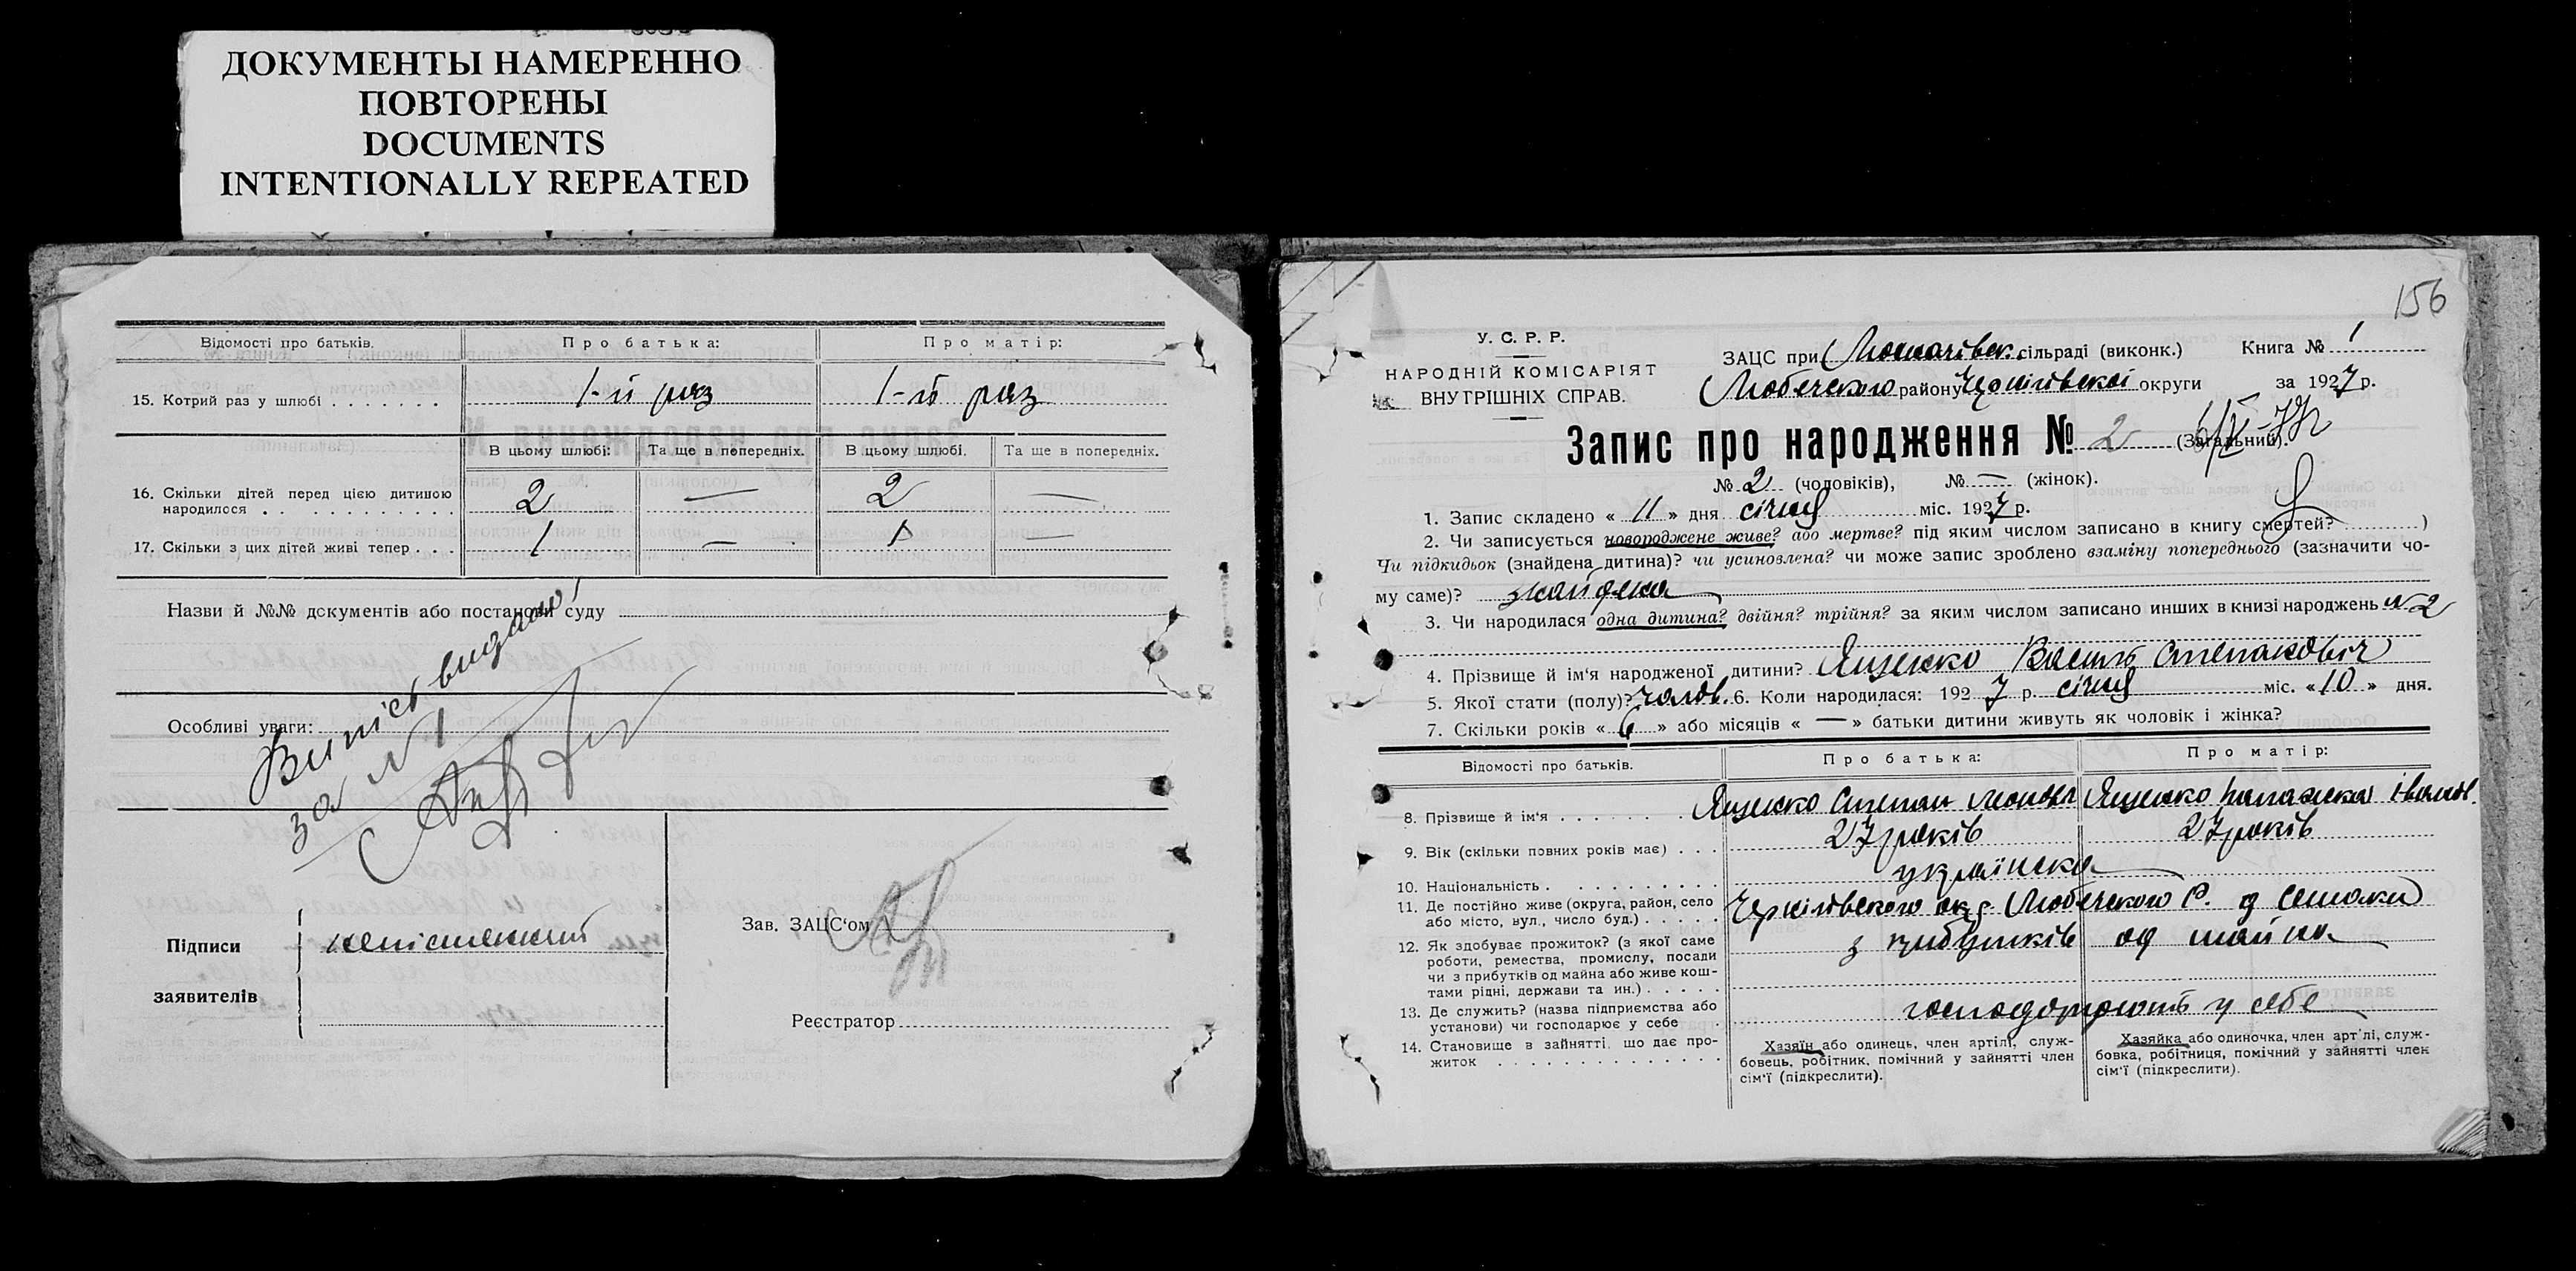 ДОКУМЕНТЫ НАМЕРЕННО
ПОВТОРЕНЫ
DOCUMENTS
INTENTIONALLY REPEATED
Відомості про батьків. Про батька: Про матір:
15. Котрий раз у шлюбі . . . . . . . 1-й раз 1-й раз
В цьому шлюбі: Та ще в попередніх. В цьому шлюбі. Та ще в попередніх.
16. Скільки дітей перед цією дитиною
народилося . . . . . . . . . . . 2 — 2 —
17. Скільки з цих дітей живі тепер . . . 1 — 1 —
Назви й №№ документів або постанови суду
Особливі уваги:
Випісь видано
за № 1
Підписи
заявителів
неписьменний
Зав. ЗАЦС'ом
Реєстратор
156
У. С. Р. Р.
НАРОДНІЙ КОМІСАРІЯТ
ВНУТРІШНІХ СПРАВ.
ЗАЦС при сільраді (виконк.) Книга № 1
Любечского району Чернігівської округи за 1927 р.
Запис про народження № 2 (Загальний).
№ 2 (чоловіків), № — (жінок).
1. Запис складено « 11 » дня січня міс. 1927 р.
2. Чи записується новороджене живе? або мертве? під яким числом записано в книгу смертей? )
Чи підкидьок (знайдена дитина)? чи усиновлена? чи може запис зроблено взаміну попереднього (зазначити чо-
му саме)?
3. Чи народилася одна дитина? двійня? трійня? за яким числом записано инших в книзі народжень № 2
4. Прізвище й ім'я народженої дитини? Ященко Василь Степанович
5. Якої стати (полу)? чолов. 6. Коли народилася: 1927 р. січня міс. « 10 » дня.
7. Скільки років « 6 » або місяців « — » батьки дитини живуть як чоловік і жінка?
Відомості про батьків. Про батька: Про матір:
8. Прізвище й ім'я . . . . . . . Ященко Степан Ященко
9. Вік (скільки повних років має) . . . 27 років 27 років
10. Національність . . . . . . . . . . українска
11. Де постійно живе (округа, район, село
або місто, вул., число буд.) . . . . . Чернігівского окр. Любечского Р.
12. Як здобуває прожиток? (з якої саме
роботи, ремества, промислу, посади
чи з прибутків од майна або живе кош-
тами рідні, держави та ин.) . . . . . з прибутків од майна
13. Де служить? (назва підприємства або
установи) чи господарює у себе . господарюють у себе
14. Становище в зайнятті, що дає про-
житок . . . . . . . . . . . . . .
Хазяїн або одинець, член артілі, служ-
бовець, робітник, помічний у зайнятті член
сім'ї (підкреслити).
Хазяйка або одиночка, член арт'лі, служ-
бовка, робітниця, помічний у зайнятті член
сім'ї (підкреслити).